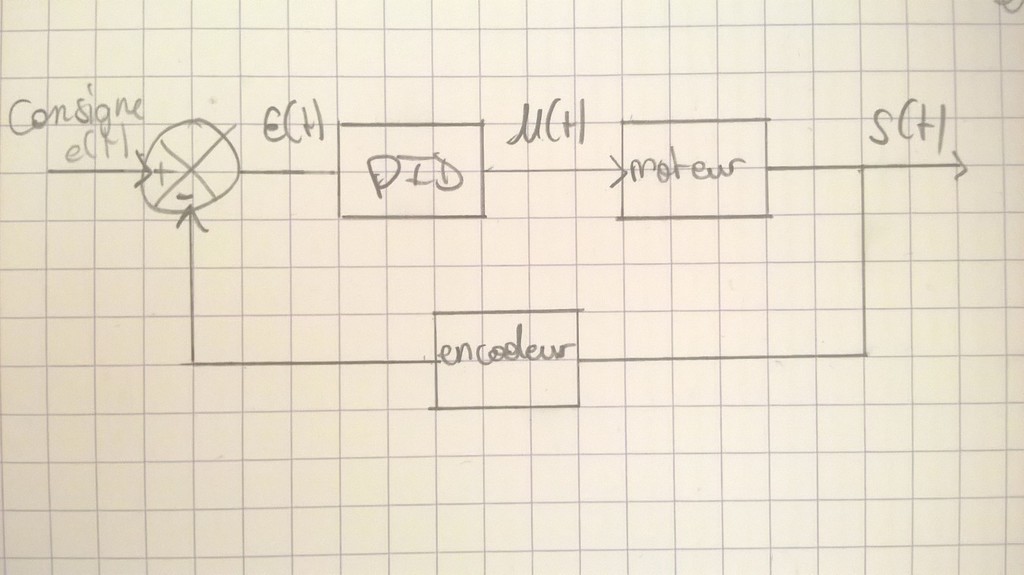 Consigne
e(t)
+
-
ε(t)
PID
μ(t)
moteur
S(t)
encodeur